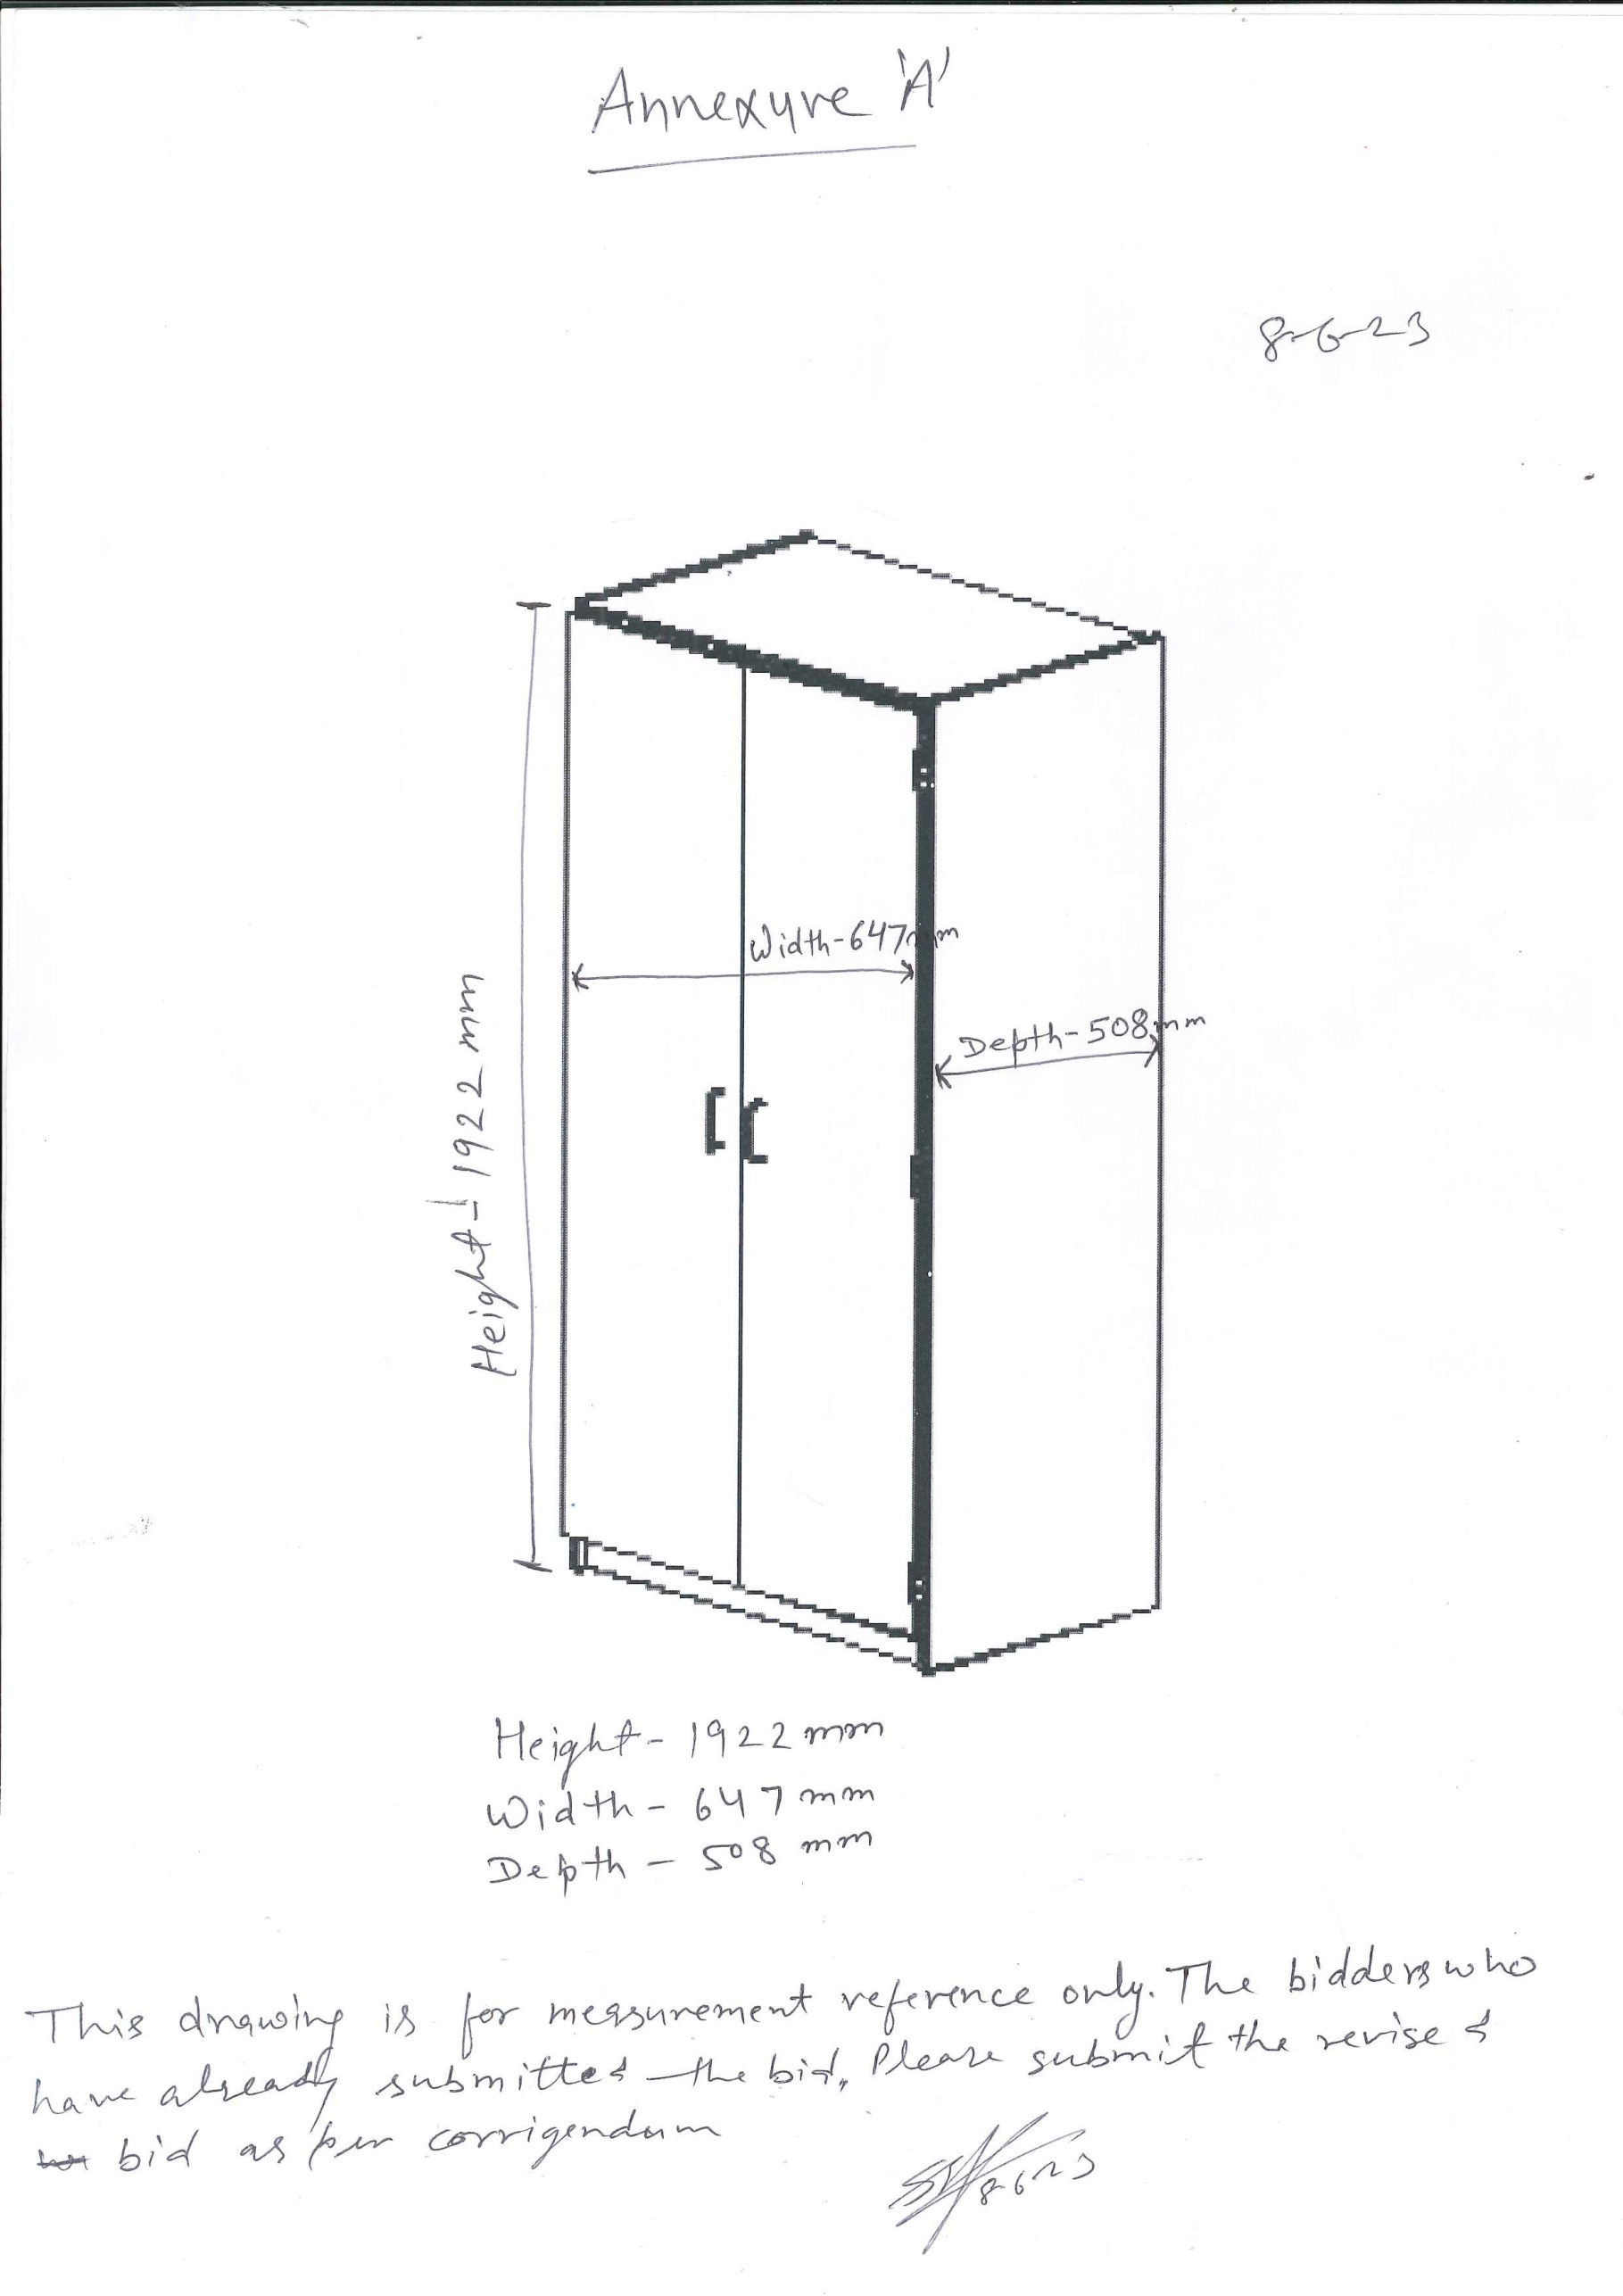 Annexure 'A'
8-6-23
Width-647mm
Depth-508mm
Height-1922 mm
Height- 1922 mm
Width - 647 mm
Depth - 508 mm
This drawing is for measurement reference only. The bidders who
have already submitted the bid, Please submit the revised
bid as per corrigendum
8-6-23